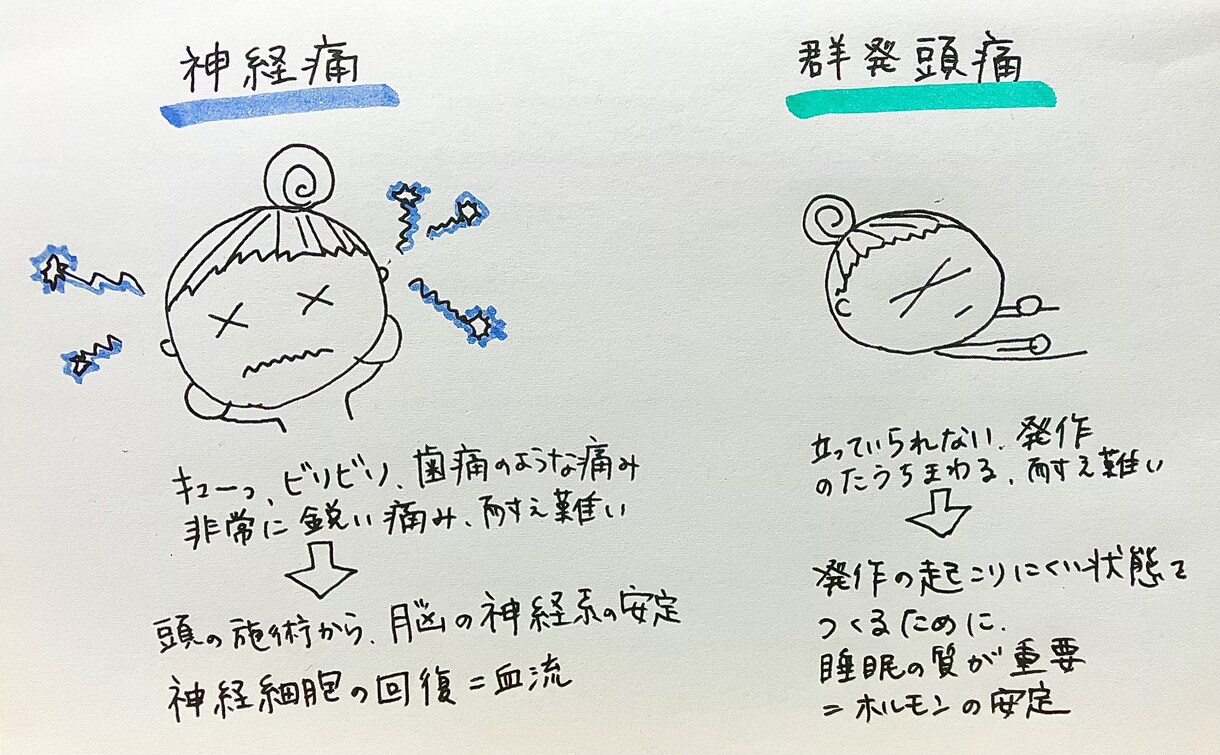 神経痛
キューっ、ビリビリ、歯痛のような痛み
非常に鋭い痛み、耐え難い
頭の施術から、脳の神経系の安定
神経細胞の回復=血流
群発頭痛
立っていられない、発作
のたうちまわる、耐え難い
発作の起こりにくい状態を
つくるために、
睡眠の質が重要
=ホルモンの安定